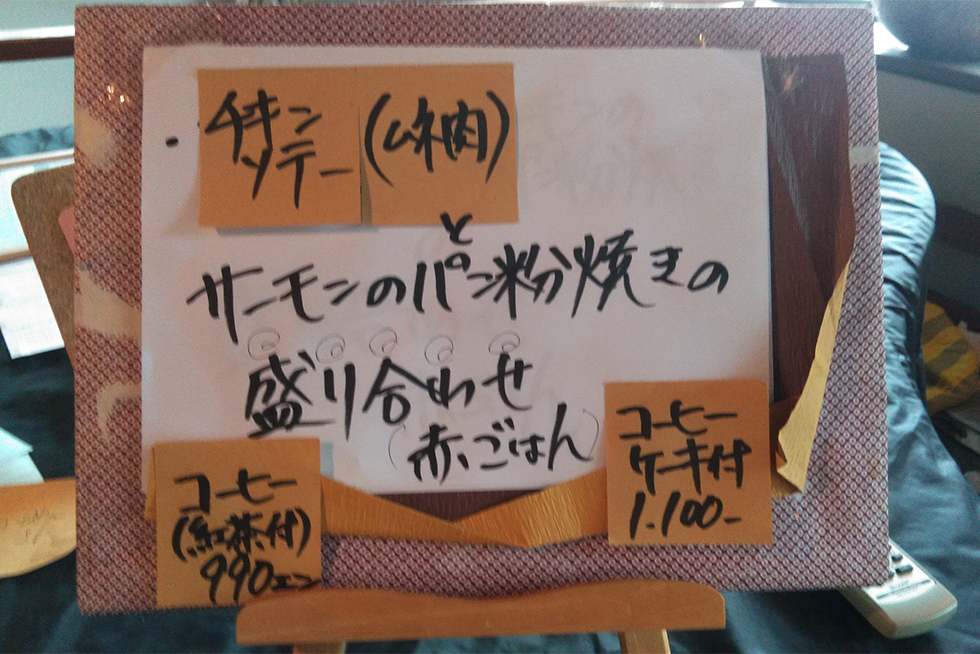 ・チキン
ソテー
(ムネ肉)
と
サーモンのパン粉焼きの
盛り合わせ
(赤ごはん)
コーヒー
(紅茶付)
990エン
コーヒー
ケーキ付
1.100-